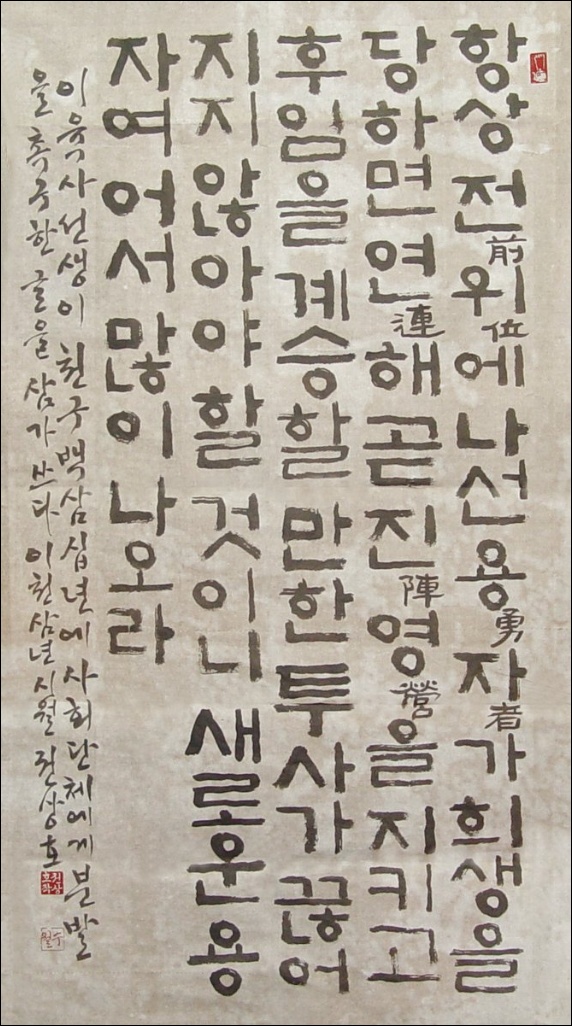 항상 전前위位에 나선 용勇자者가 희생을
당하면 연連해 곧 진陣영營을 지키고
후임을 계승할 만한 투사가 끊어
지지 않아야 할 것이니 새로운 용
자여 어서 많이 나오라
이육사 선생이 천구백삼십년에 사회단체에게 분발
을 촉구한 글을 삼가 쓰다 이천삼년 시월 권상호